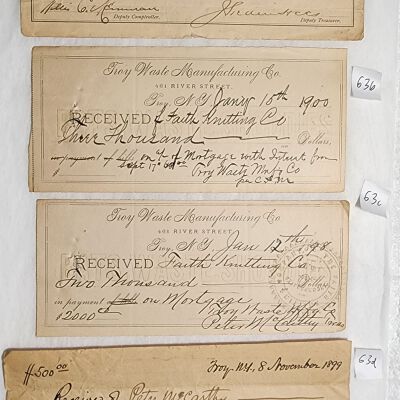 Deputy Comptroller. Deputy Treasurer.
Troy Waste Manufacturing Co.
401 RIVER STREET.
Troy, N.Y. Jany 15th 1900
RECEIVED of Faith Knitting Co
Three Thousand Dollars,
in payment of bill, on % of Mortgage with Interest from
Sept 17th
Troy Waste Mnfg Co
636
Troy Waste Manufacturing Co.
401 RIVER STREET.
Troy, N.Y. Jan 12th 1898
RECEIVED Faith Knitting Co.
Two Thousand Dollars
in payment of bill on Mortgage
$2000 Troy Waste Mfg Co
Peter McCarthy Pres
63c
#500 00 Troy N.Y. 8 November 1899
Received of Peter McCarthy
63d